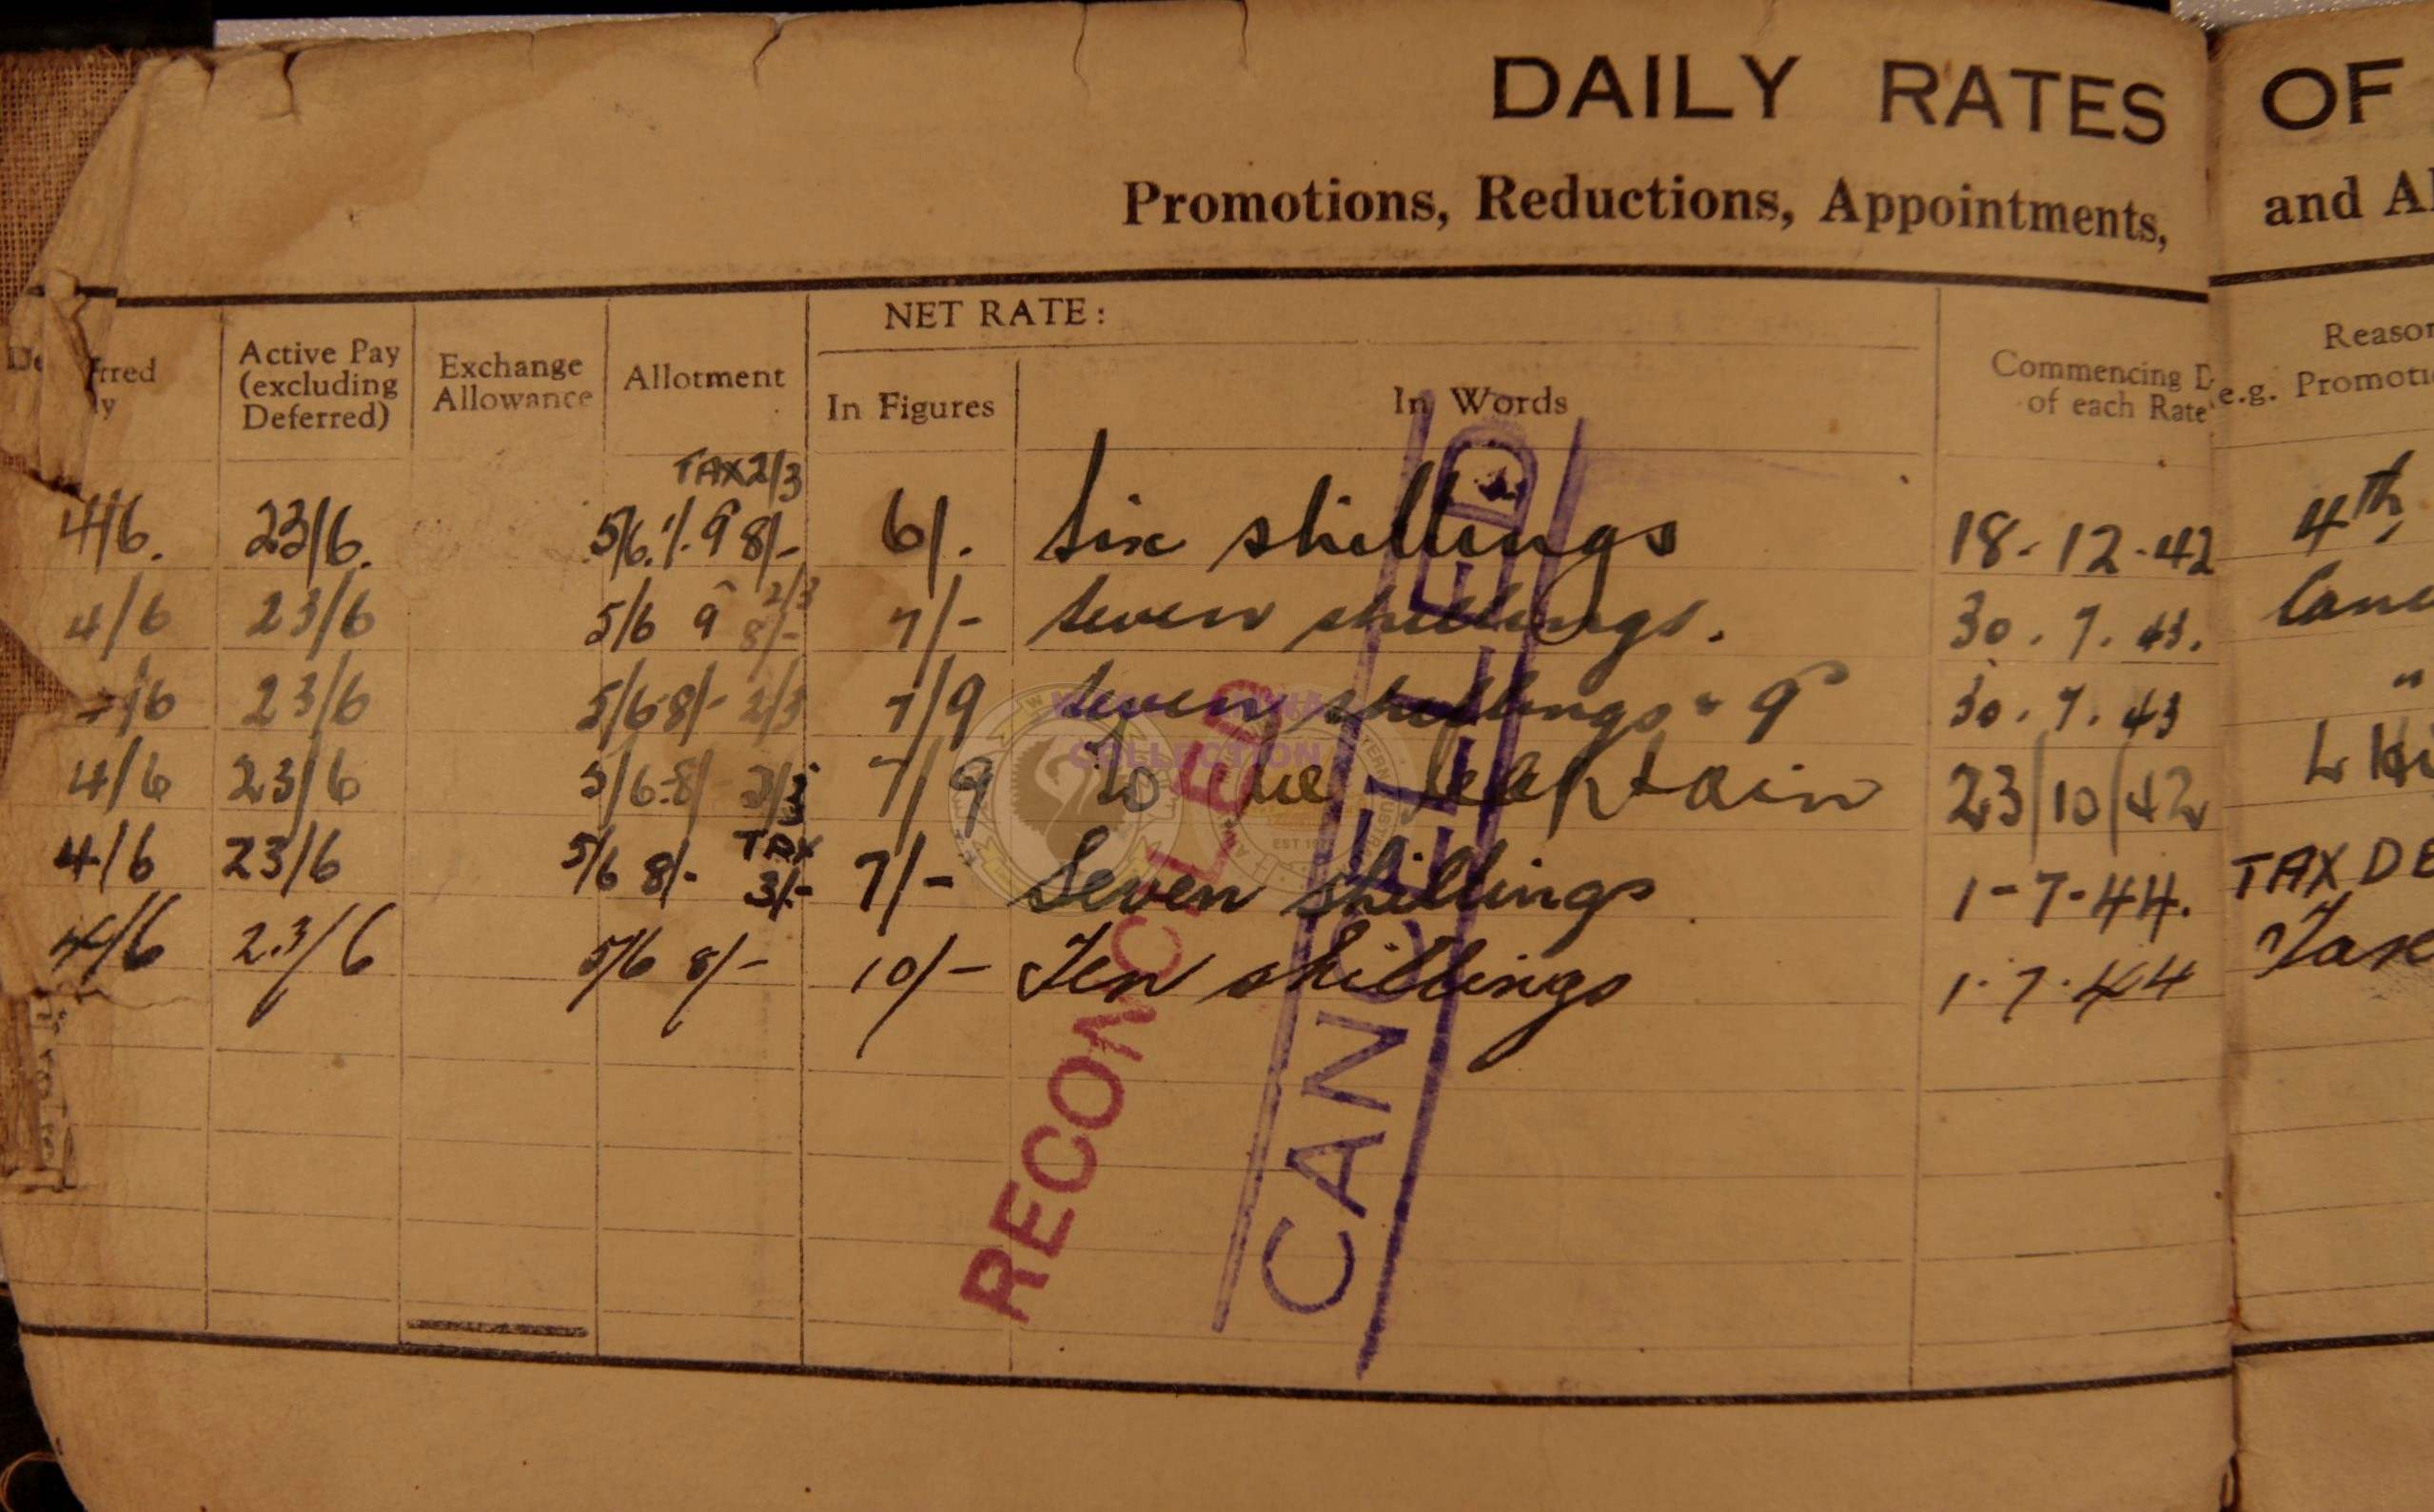 DAILY RATES OF
Promotions, Reductions, Appointments, and
NET RATE:
Active Pay (excluding Deferred)
Exchange Allowance
Allotment
In Figures
In Words
Commencing
of each Rate
e.g.
TAX 2/3
4/6. 23/6. 5/6. 1/. 9 8/- 6/. six shillings 18-12-42 4th
2/3
4/6 23/6 5/6 9 8/- 7/- seven shillings. 30.7.43.
23/6 5/6 8/- 2/3 7/9 seven shillings 9 30.7.43 "
4/6 23/6 5/6 8/- 7/9 to be Captain 23/10/42
4/6 23/6 5/6 8/- TAX 3/- 7/- Seven shillings 1-7-44. TAX
4/6 23/6 5/6 8/- 10/- Ten shillings 1.7.44
RECONCILED
CANCELLED
COLLECTION